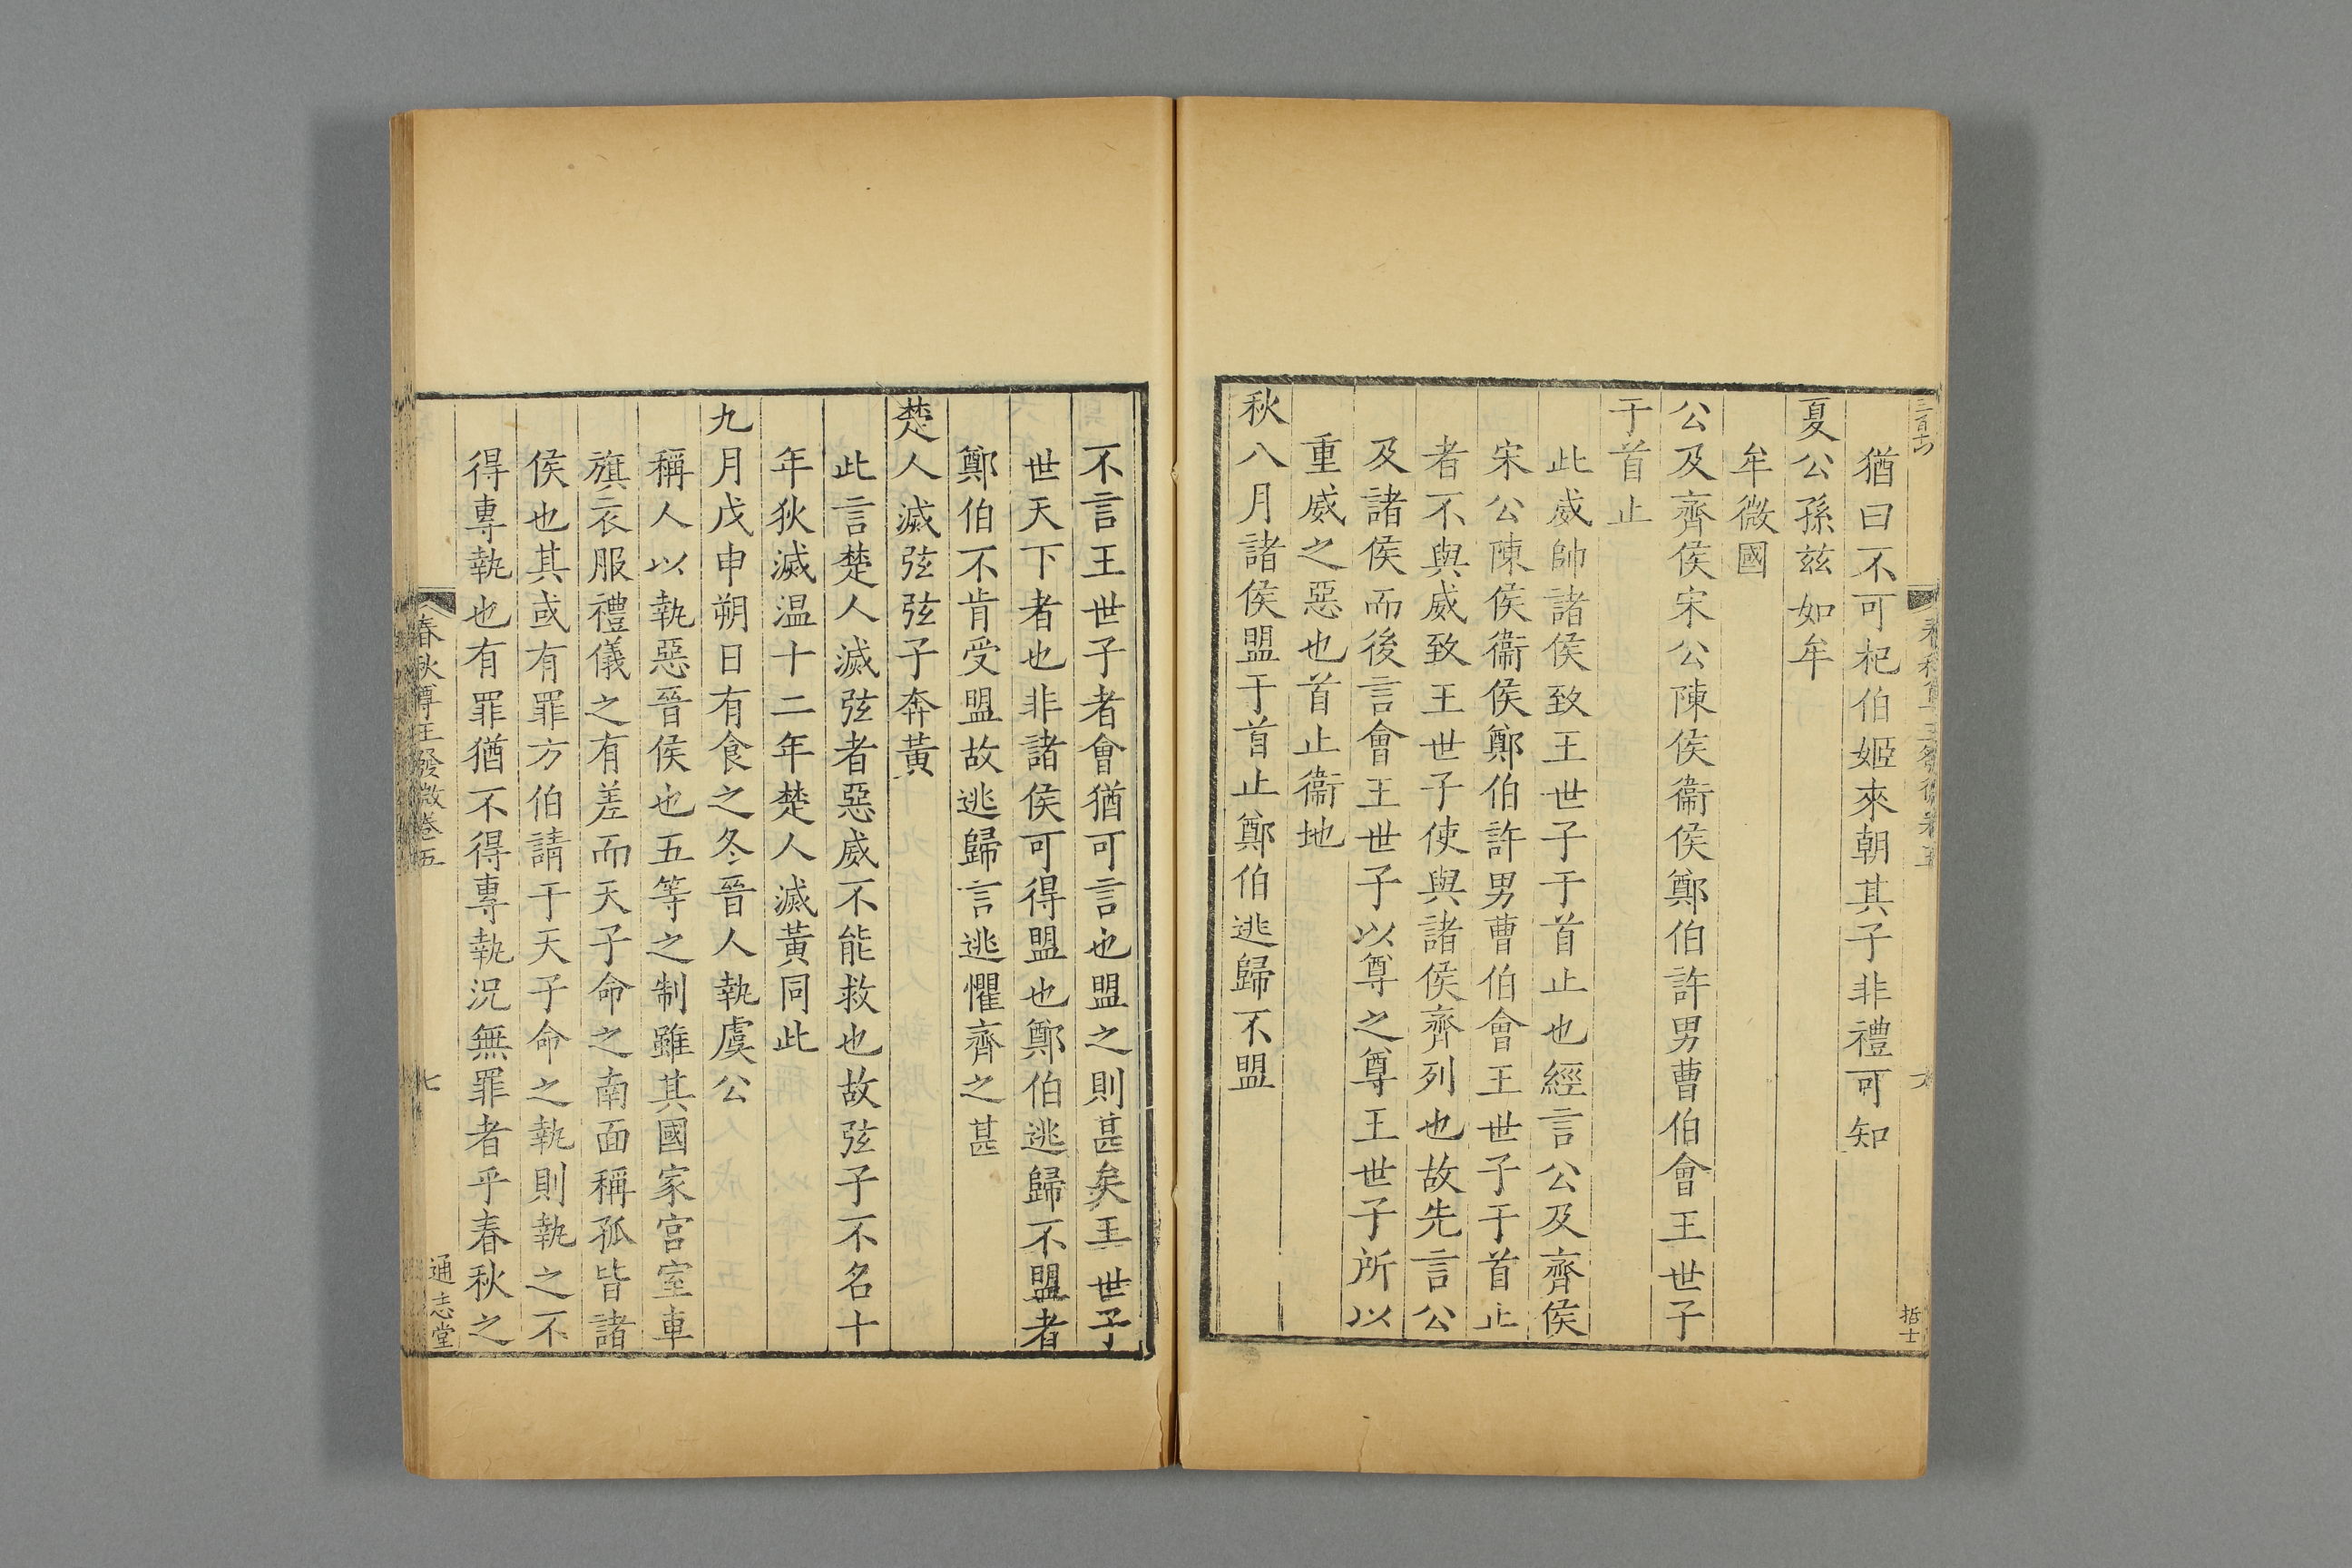 猶曰不可杞伯姬來朝其子非禮可知
夏公孫兹如牟
牟微國
公及齊侯宋公陳侯衞侯鄭伯許男曹伯會王世子
于首止
此威帥諸侯致王世子于首止也經言公及齊侯
宋公陳侯衞侯鄭伯許男曹伯會王世子于首止
者不與威致王世子使與諸侯齊列也故先言公
及諸侯而後言會王世子以尊之尊王世子所以
重威之惡也首止衞地
秋八月諸侯盟于首止鄭伯逃歸不盟
不言王世子者會猶可言也盟之則甚矣王世子
世天下者也非諸侯可得盟也鄭伯逃歸不盟者
鄭伯不肯受盟故逃歸言逃懼齊之甚
楚人滅弦弦子奔黃
此言楚人滅弦者惡威不能救也故弦子不名十
年狄滅温十二年楚人滅黃同此
九月戊申朔日有食之冬晉人執虞公
稱人以執惡晉侯也五等之制雖其國家宮室車
旗衣服禮儀之有差而天子命之南面稱孤皆諸
侯也其或有罪方伯請于天子命之執則執之不
得專執也有罪猶不得專執況無罪者乎春秋之
春秋尊王發微卷五
七
通志堂